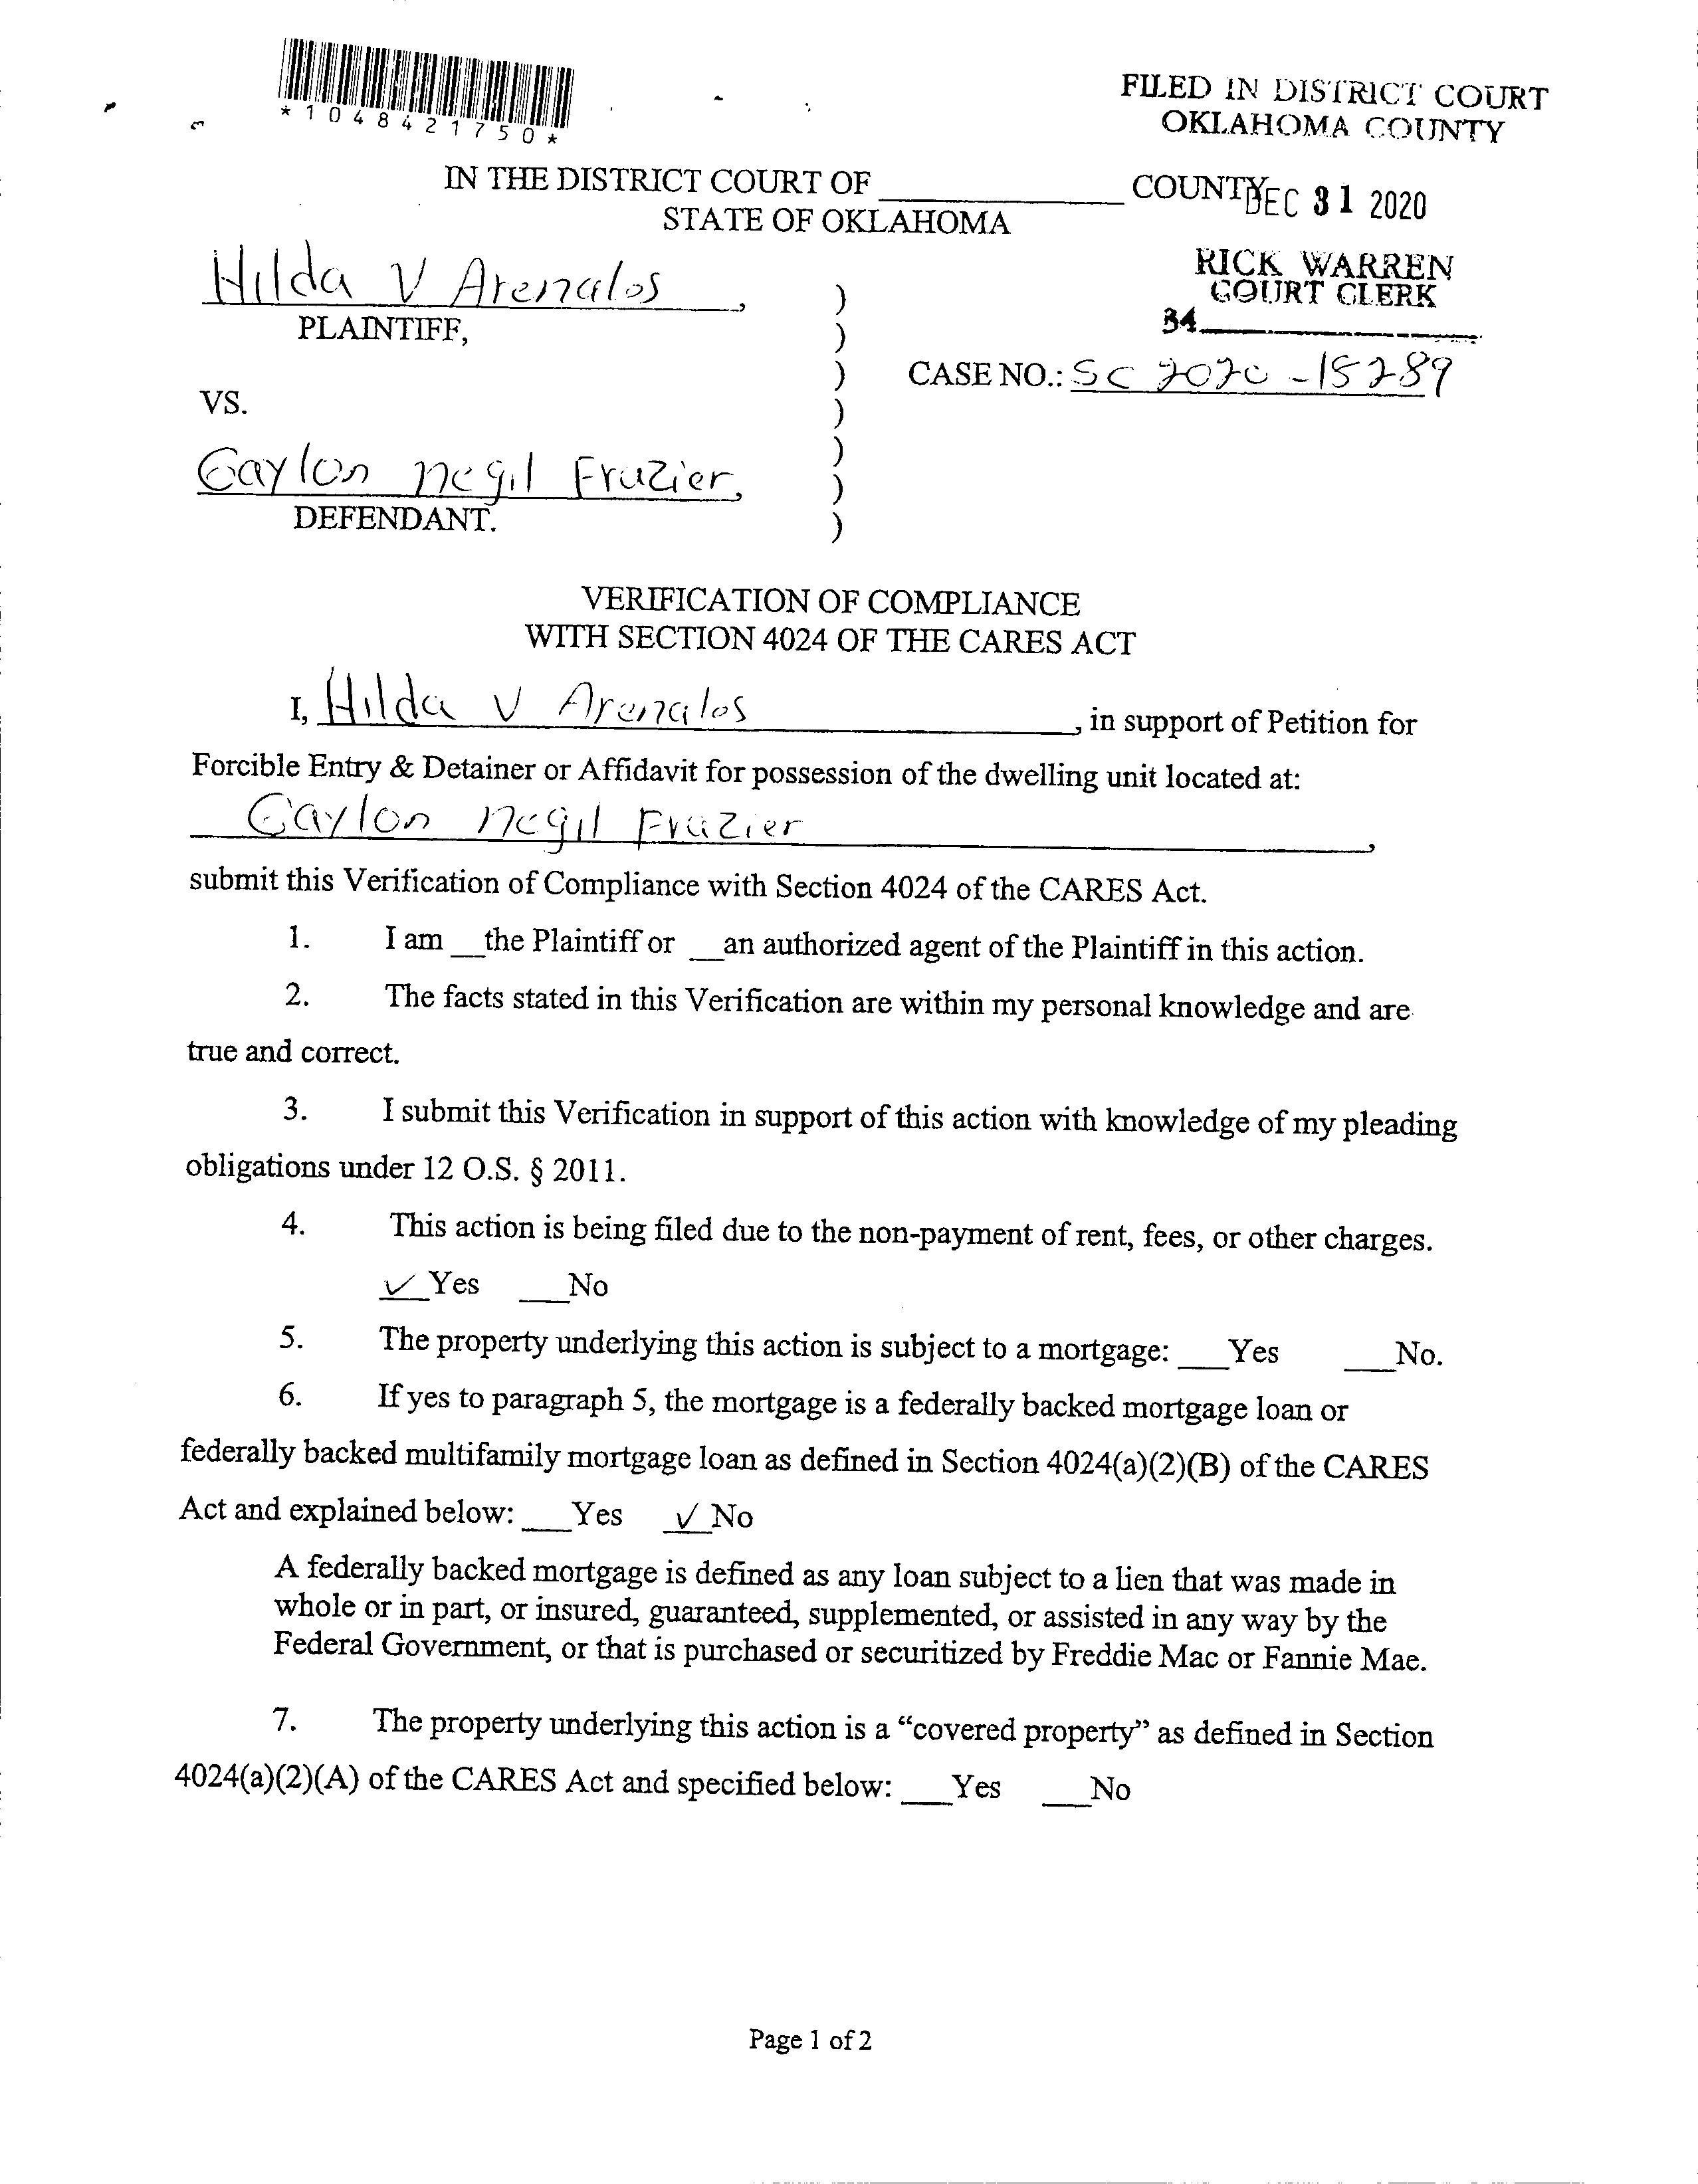 *1048421750*
FILED IN DISTRICT COURT
OKLAHOMA COUNTY
IN THE DISTRICT COURT OF ____________ COUNTY
DEC 31 2020
STATE OF OKLAHOMA
RICK WARREN
COURT CLERK
34
Hilda V Arenalos,
PLAINTIFF,
CASE NO.: SC 2020-15289
VS.
Gaylon negil Frazier,
DEFENDANT.
)
)
)
)
)
)
)
VERIFICATION OF COMPLIANCE
WITH SECTION 4024 OF THE CARES ACT
I, Hilda V Arenalos, in support of Petition for
Forcible Entry & Detainer or Affidavit for possession of the dwelling unit located at:
Gaylon negil Frazier,
submit this Verification of Compliance with Section 4024 of the CARES Act.
1. I am __the Plaintiff or __an authorized agent of the Plaintiff in this action.
2. The facts stated in this Verification are within my personal knowledge and are
true and correct.
3. I submit this Verification in support of this action with knowledge of my pleading
obligations under 12 O.S. § 2011.
4. This action is being filed due to the non-payment of rent, fees, or other charges.
✓ Yes ___No
5. The property underlying this action is subject to a mortgage: ___Yes ___No.
6. If yes to paragraph 5, the mortgage is a federally backed mortgage loan or
federally backed multifamily mortgage loan as defined in Section 4024(a)(2)(B) of the CARES
Act and explained below: ___Yes ✓ No
A federally backed mortgage is defined as any loan subject to a lien that was made in
whole or in part, or insured, guaranteed, supplemented, or assisted in any way by the
Federal Government, or that is purchased or securitized by Freddie Mac or Fannie Mae.
7. The property underlying this action is a “covered property” as defined in Section
4024(a)(2)(A) of the CARES Act and specified below: ___Yes ___No
Page 1 of 2